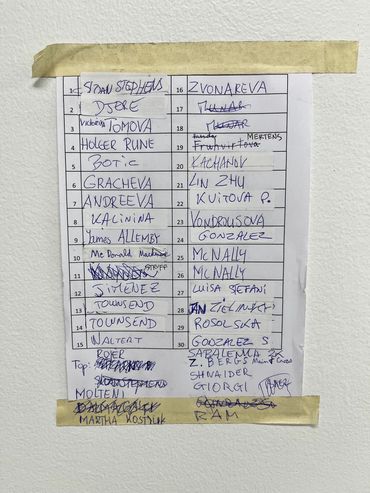 1 SLOAN STEPHENS
2 DJERE
3 Victoria TOMOVA
4 HOLGER RUNE
5 BOTIC
6 GRACHEVA
7 ANDREEVA
8 KALININA
9 James ALLEMBY
10 Mc Donald
11
12 JIMENEZ
13 TOWNSEND
14 TOWNSEND
15 WALTERT
ROJER
Top:
MOLTENI
MARTHA KOSTYUK
16 ZVONAREVA
17
18
19 Fruhvirtova MERTENS
20 KACHANOV
21 LIN ZHU
22 KVITOVA P.
23 VONDROUSOVA
24 GONZALEZ
25 MCNALLY
26 MCNALLY
27 LUISA STEFANI
28 JAN ZIELINSKI
29 ROSOLSKA
30 GONZALEZ S
SABALENKA
Z. BERGS
SHNAIDER
GIORGI
RAM